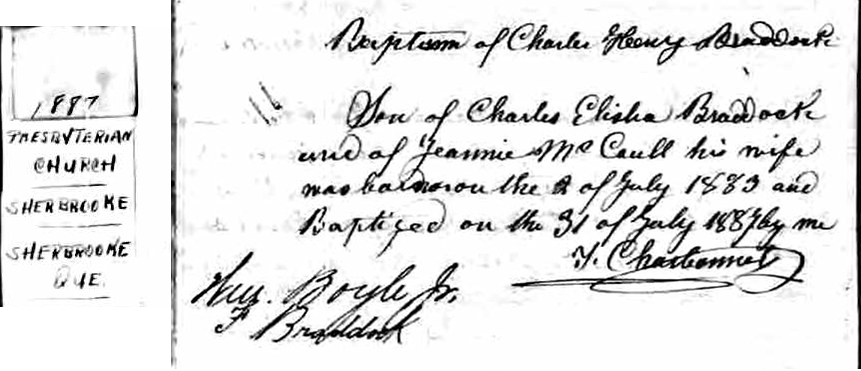 1887
PRESBYTERIAN
CHURCH
SHERBROOKE
SHERBROOKE
QUE.
Baptism of Charles Henry Braddock
Son of Charles Elisha Braddock
and of Jeannie McCaull his wife
was born on the 2 of July 1883 and
Baptized on the 31 of July 1887 by me
T. Charbonnel
Wm. Boyle Jr.
F Braddock